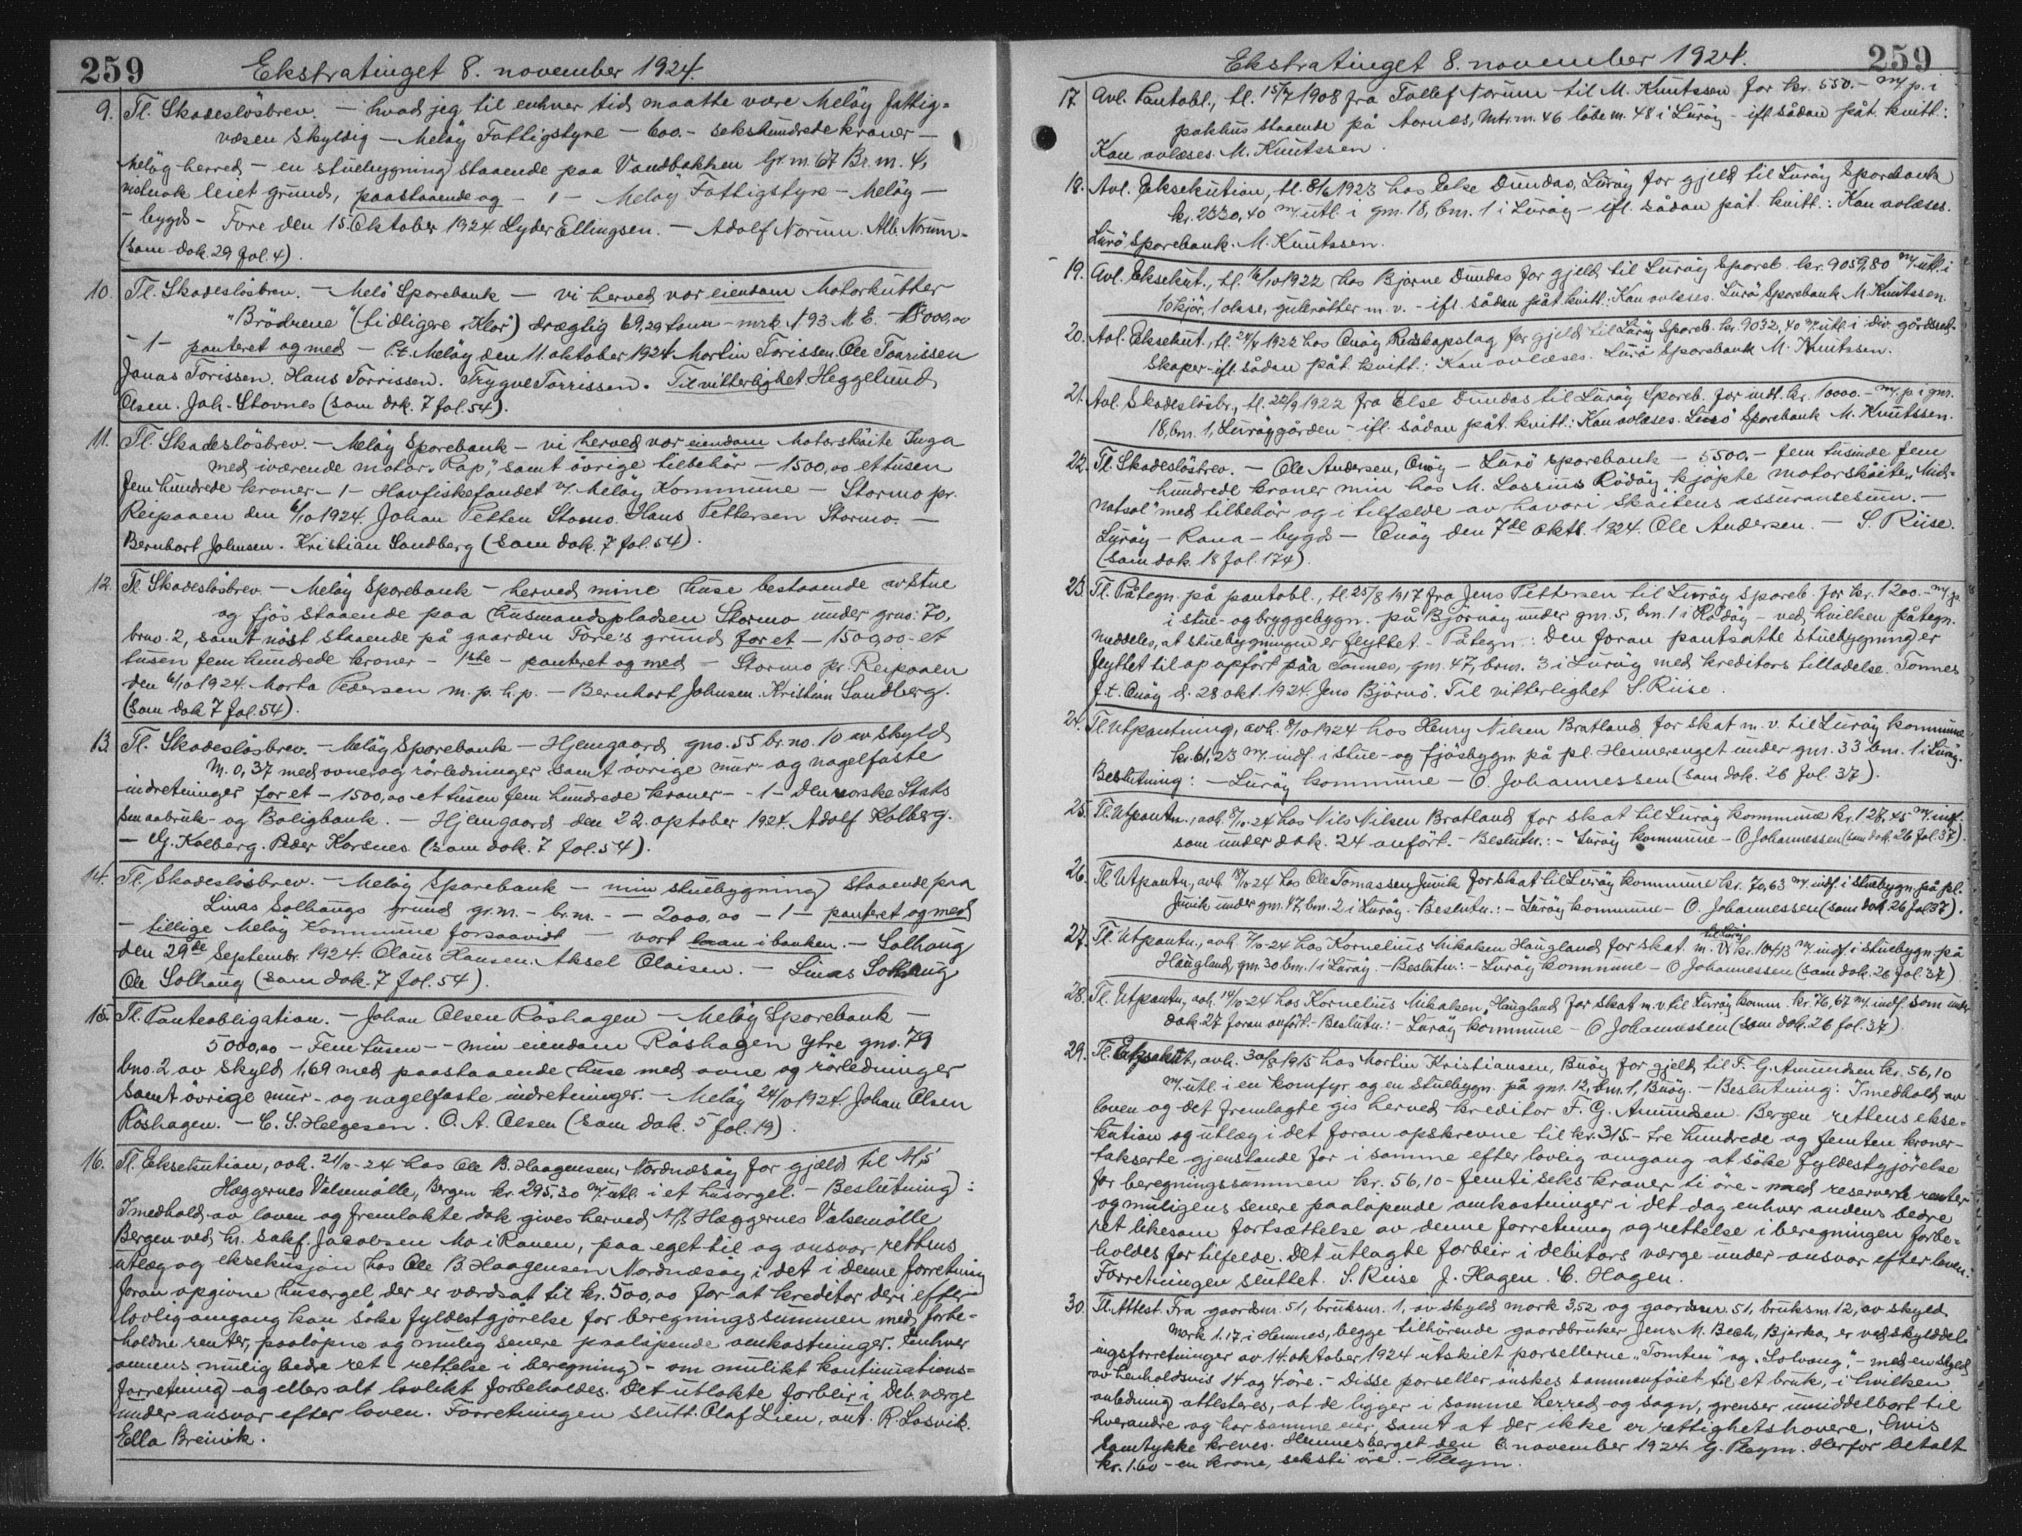 259
Ekstratinget 8. november 1924.
9. Tl. Skadesløsbrev. – hvad jeg til enhver tid maatte være Meløy fattig-
væsen skyldig – Meløy Fattigstyre – 600.- sekshundrede kroner –
Meløy herred – en stuebygning staaende paa Vandbakken Gr. nr. 67 Br. nr. 4,
leiet grund, paastaaende og – 1 – Meløy Fattigstyre – Meløy –
– bygds – Fore den 15. Oktober 1924 Lyder Ellingsen. – Adolf Norum. Alb. Norum-
(som dok. 29 fol. 4).
10. Tl. Skadesløsbrev. – Melø Sparebank – vi herved vor eiendom Motorkutter
"Brødrene" (tidligere "Klør") drægtig 69,29 tonn – mrk. N 93 M E. – 8000,00
– 1 – panteret og med – P.t. Meløy den 11. oktober 1924. Martin Torissen. Ole Torrissen
Jonas Torissen. Hans Torrissen. Trygve Torrissen. Til vitterlighet Heggelund
Olsen. Joh. Stovnes (som dok. 7 fol. 54).
11. Tl. Skadesløsbrev. – Meløy Sparebank – vi herved vor eiendom Motorskøite Inga
med iværende motor "Rap," samt øvrige tilbehør – 1500,00 ettusen
fem hundrede kroner – 1 – Havfiskefondet v/ Meløy Kommune – Stormo pr.
Reipaaen den 6/10 1924. Johan Petten Stormo. Hans Pettersen Stormo. –
Bernhart Johnsen. Kristian Sandberg (som dok. 7 fol. 54).
12. Tl. Skadesløsbrev. – Meløy Sparebank – herved mine huse bestaaende av stue
og fjøs staaende paa husmandspladsen Stormo under grno: 70,
brno. 2, samt nøst staaende på gaarden Fore's grund for et – 1500,00 - et
tusen fem hundrede kroner – 1ste – panteret og med – Stormo pr. Reipaaen
den 6/10 1924. Marta Pedersen m. p. h. p. – Bernhart Johnsen. Kristian Sandberg.
(som dok 7 fol. 54).
13. Tl. Skadesløsbrev. – Meløy Sparebank – Hjemgaard gno. 55 br. no. 10 av skyld
M. 0,37 med ovner og rørledninger samt øvrige mur- og nagelfaste
indretninger for et – 1500,00 et tusen fem hundrede kroner – – 1 – Den norske Stats
Smaabruk- og Boligbank. – Hjemgaard den 22. oktober 1924. Adolf Kolberg.
– Kolberg. Peder Korsnes (som dok. 7 fol. 54).
14. Tl. Skadesløsbrev. – Meløy Sparebank – min stuebygning staaende paa
Linas Solhaugs grund gr. nr. – br. nr. – – 2000,00 – 1 – panteret og med
– tillige Meløy Kommune forsaavidt – vort laan i banken. – Solhaug
den 29de Septembr. 1924. Olaus Hansen. Aksel Olaisen. – Linas Solhaug
Ole Solhaug (som dok. 7 fol. 54).
15. Tl. Panteobligation. – Johan Olsen Røshagen – Meløy Sparebank –
5000,00 – Fem tusen – – min eiendom Røshagen ytre gno. 79
bno. 2 av skyld 1,69 med paastaaende huse med ovne og rørledninger
samt øvrige mur- og nagelfaste indretninger. – Meløy 24/10 1924. Johan Olsen
Røshagen. – C. S. Helgesen. O. A. Olsen (som dok. 5 fol. 19).
16. Tl. Eksekution, avh. 21/10-24 hos Ole B. Haagensen, Nordnæsøy for gjæld til A/S
Hæggernes Valsemølle, Bergen kr. 295.30 m/ utl. i et husorgel. – Beslutning:
I medhold av loven og fremlakte dok. gives herved A/S Hæggernes Valsemølle
Bergen ved hr. sakf. Jacobsen Mo i Ranen, paa eget til og ansvar rettens
utlæg og eksekusjon hos Ole B. Haagensen Nordnæsøy i det i denne forretning
foran opgivne husorgel, der er værdsat til kr. 500,00 for at kreditor deri efter
lovlig omgang kan søke fyldestgjørelse for beregningssummen med forbe-
holdne renter, paaløpne og mulig senere paaløpende omkostninger. Enhver
annens mulig bedre ret – rettelse i beregning – om mulikt kontinuations-
forretning og ellers alt lovlikt forbeholdes. Det utlakte forblir i deb. værge
under ansvar efter loven. Forretningen slutt. Olaf Lien, aut. R. Losvik.
Ella Breivik.
259
Ekstratinget 8. november 1924.
17. Avl. Pantobl., tl. 15/7 1908 fra Tollef Norum til M. Knutssen for kr. 550.- m/ p. i
pakhus staaende på Aornes, Mtr. nr. 46 løbe nr. 48 i Lurøy – ifl. sådan påt. kvitt.:
Kan avlæses. M. Knutssen.
18. Avl. Eksekution, tl. 8/6 1923 hos Else Dundas, Lurøy for gjeld til Lurøy Sparebank
kr. 2330,40 m/ utl. i gnr. 18, bnr. 1 i Lurøy – ifl. sådan påt. kvitt.: Kan avlæses.
Lurø Sparebank. M. Knutssen.
19. Avl. Eksekut., tl. 16/10 1922 hos Bjarne Dundas for gjeld til Lurøy Spareb. kr. 9059,80 m/ utl. i
10 kjør, 1 okse, gulerøtter m. v. – ifl. sådan påt. kvitt.: Kan avlæses. Lurø Sparebank M. Knutssen.
20. Avl. Eksekut., tl. 24/8 1922 hos Onøy Redskapslag for gjeld til Lurøy Spareb. kr. 9032,40 m/ utl. i div. gårdsred-
skaper – ifl. sådan påt. kvitt.: Kan avlæses. Lurø Sparebank M. Knutssen.
21. Avl. Skadesløsbr., tl. 22/9 1922 fra Else Dundas til Lurøy Spareb. for indt. kr. 10000.- m/ p. i gnr.
18, bnr. 1, Lurøygården – ifl. sådan påt. kvitt.: Kan avlæses. Lurø Sparebank M. Knutssen.
22. Tl. Skadesløsbrev. – Ole Andersen, Onøy – Lurø Sparebank – 5500,- fem tusinde fem
hundrede kroner min hos M. Lossius Rødøy kjøpte motorskøite "Mid-
natsol" med tilbehør og i tilfælde av havari skøitens assurancesum. –
Lurøy – Rana – bygds – Onøy den 7de oktb. 1924. Ole Andersen. – S. Riise.
(som dok. 18 fol. 174).
23. Tl. Påtegn. på pantobl., tl. 25/8 1917 fra Jens Pettersen til Lurøy Spareb. for kr. 1200.- m/ p.
i stue- og bryggebygn. på Bjørnøy under gnr. 5, bnr. 1 i Rødøy – ved hvilken påtegn.
meddeles, at stuebygningen er flyttet. – Påtegn.: Den foran pantsatte stuebygning er
flyttet til og opført på Tonnes, gnr. 47, bnr. 3 i Lurøy med kreditors tilladelse. Tonnes
f.t. Onøy d. 28 okt. 1924. Jens Bjørnø. Til vitterlighet S. Riise.
24. Tl. Utpantning, avh. 8/10 1924 hos Henry Nilsen Bratland for skat m. v. til Lurøy kommune
kr. 61,23 m/ indf. i stue- og fjøsbygn. på pl. Hemerenget under gnr. 33 bnr. 1 i Lurøy.
Beslutning: – Lurøy kommune – O. Johannessen (som dok. 26 fol. 37).
25. Tl. Utpantn., avh. 8/10-24 hos Nils Nilsen Bratland for skat til Lurøy kommune kr. 127,45 m/ indf.
som under dok. 24 anført. – Beslutn.: – Lurøy kommune – O Johannessen (som dok. 26 fol. 37).
26. Tl. Utpantn., avh. 18/10-24 hos Ole Tomassen Juvik for skat til Lurøy kommune kr. 70,63 m/ indf. i stuebygn. på pl.
Juvik under gnr. 47, bnr. 2 i Lurøy. – Beslutn.: – Lurøy kommune – O. Johannessen (som dok. 26 fol 37).
27. Tl. Utpantn., avh. 7/10-24 hos Kornelius Mikalsen Haugland for skat m. v. til Lurøy kr. 104,13 m/ indf. i stuebygn. på
Haugland, gnr. 30 bnr. 1 i Lurøy. – Beslutn.: – Lurøy kommune – O Johannessen (som dok. 26 fol. 37)
28. Tl. Utpantn., avh. 14/10-24 hos Kornelius Mikalsen, Haugland for skat m. v. til Lurøy komm. kr. 76,67 m/ indf. som under
dok. 27 foran anført. – Beslutn.: – Lurøy kommune – O Johannessen (som dok. 26 fol. 37)
29. Tl. Eksekut., avh. 30/8 1915 hos Martin Kristiansen, Buøy for gjeld til F. G. Amundsen kr. 56,10
m/ utl. i en komfyr og en stuebygn. på gnr. 12, bnr. 1, Buøy. – Beslutning: I medhold av
loven og det fremlagte gis herved kreditor F. G. Amundsen Bergen rettens ekse-
kution og utlæg i det foran opskrevne til kr. 315.- tre hundrede og femten kroner –
takserte gjenstande for i samme efter lovlig omgang at søke fyldestgjørelse
for beregningssummen kr. 56,10 – femti seks kroner ti øre – med reserverte renter
og muligens senere paaløpende omkostninger i det dog enhver andens bedre
ret likesom fortsættelse av denne forretning og rettelse i beregningen forbe-
holdes for tilfelde. Det utlagte forblir i debitors værge under ansvar efter loven.
Forretningen sluttet. S. Riise J. Hagen. C. Hagen.
30. Tl. Attest. Fra gaardsnr. 51, bruksnr. 1, av skyld mark 3,52 og gaardsnr. 51, bruksnr. 12, av skyld
mark 1.17, i Hemnes, begge tilhørende gaardbruker Jens M. Bech, Bjerka, er ved skylddel-
ingsforretninger av 14. oktober 1924 utskilt parsellerne "Tomten" og "Solvang," – med en skyld
av henholdsvis 14 og 4 øre. – Disse parseller ønskes sammenføiet til et bruk, – i hvilken
anledning attesteres, at de ligger i samme herred og sogn, grenser umiddelbart til
hverandre og har samme eier, samt at der ikke er rettighetshavere, hvis
samtykke kreves. Hemnesberget den 6. november 1924. G. Plegm. Herfor betalt
kr. 1.60 – en krone, seksti øre. – Plegm.